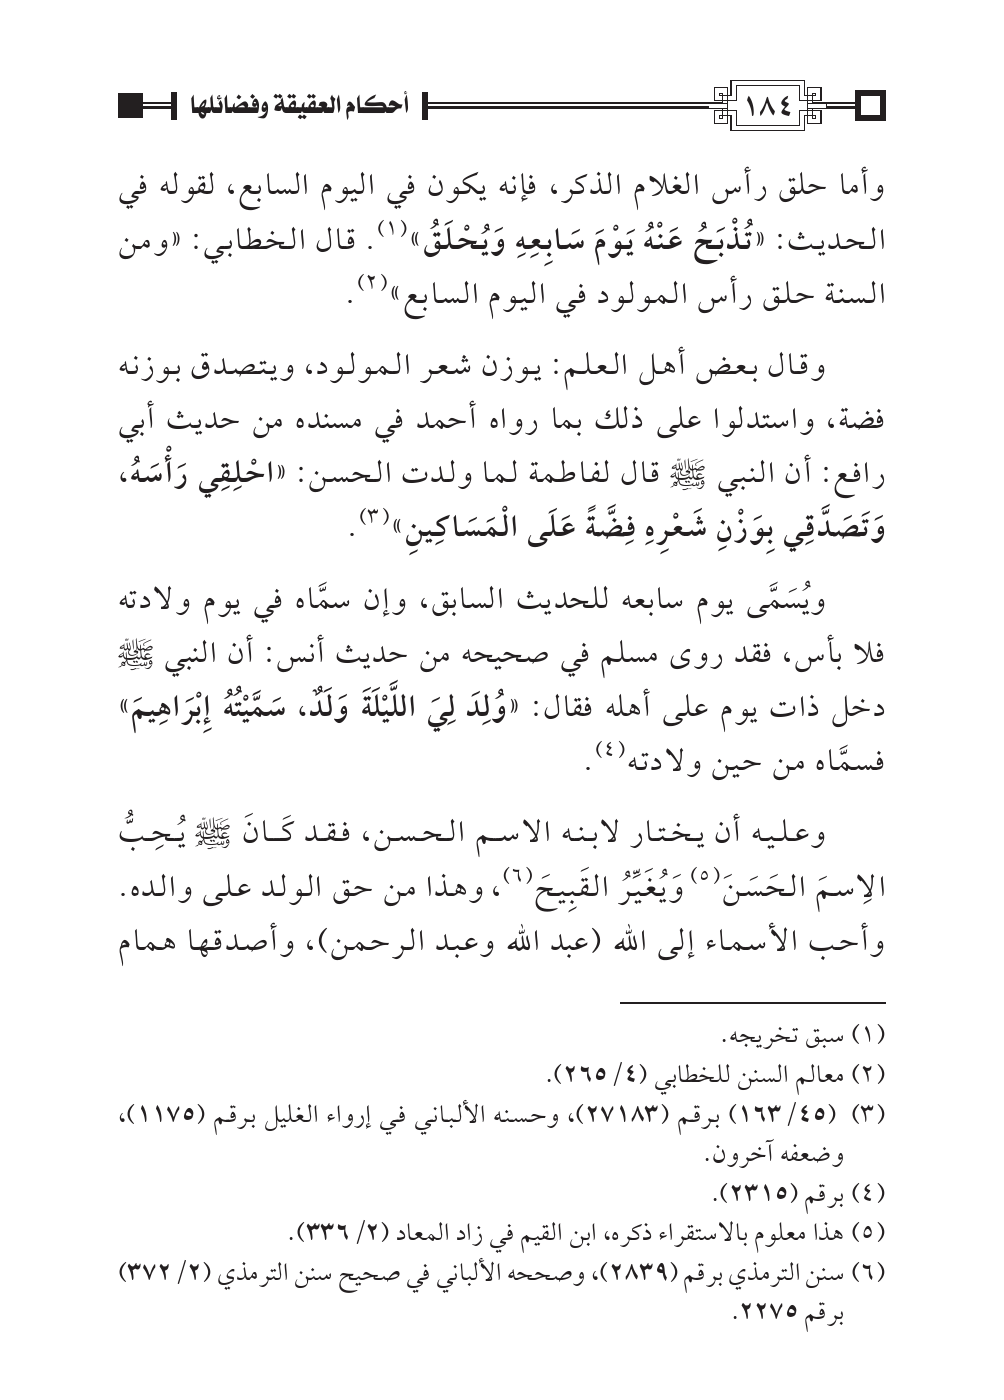 ١٨٤ أحكام العقيقة وفضائلها
وأما حلق رأس الغلام الذكر، فإنه يكون في اليوم السابع، لقوله في
الحديث: «تُذْبَحُ عَنْهُ يَوْمَ سَابِعِهِ وَيُحْلَقُ»(١). قال الخطابي: «ومن
السنة حلق رأس المولود في اليوم السابع»(٢).
وقال بعض أهل العلم: يوزن شعر المولود، ويتصدق بوزنه
فضة، واستدلوا على ذلك بما رواه أحمد في مسنده من حديث أبي
رافع: أن النبي ﷺ قال لفاطمة لما ولدت الحسن: «احْلِقِي رَأْسَهُ،
وَتَصَدَّقِي بِوَزْنِ شَعْرِهِ فِضَّةً عَلَى الْمَسَاكِينِ»(٣).
ويُسَمَّى يوم سابعه للحديث السابق، وإن سمَّاه في يوم ولادته
فلا بأس، فقد روى مسلم في صحيحه من حديث أنس: أن النبي ﷺ
دخل ذات يوم على أهله فقال: «وُلِدَ لِيَ اللَّيْلَةَ وَلَدٌ، سَمَّيْتُهُ إِبْرَاهِيمَ»
فسمَّاه من حين ولادته(٤).
وعليه أن يختار لابنه الاسم الحسن، فقد كَانَ ﷺ يُحِبُّ
الِاسمَ الحَسَنَ(٥) وَيُغَيِّرُ القَبِيحَ(٦)، وهذا من حق الولد على والده.
وأحب الأسماء إلى الله (عبد الله وعبد الرحمن)، وأصدقها همام
(١) سبق تخريجه.
(٢) معالم السنن للخطابي (٤/ ٢٦٥).
(٣) (٤٥/ ١٦٣) برقم (٢٧١٨٣)، وحسنه الألباني في إرواء الغليل برقم (١١٧٥)،
وضعفه آخرون.
(٤) برقم (٢٣١٥).
(٥) هذا معلوم بالاستقراء ذكره، ابن القيم في زاد المعاد (٢/ ٣٣٦).
(٦) سنن الترمذي برقم (٢٨٣٩)، وصححه الألباني في صحيح سنن الترمذي (٢/ ٣٧٢)
برقم ٢٢٧٥.